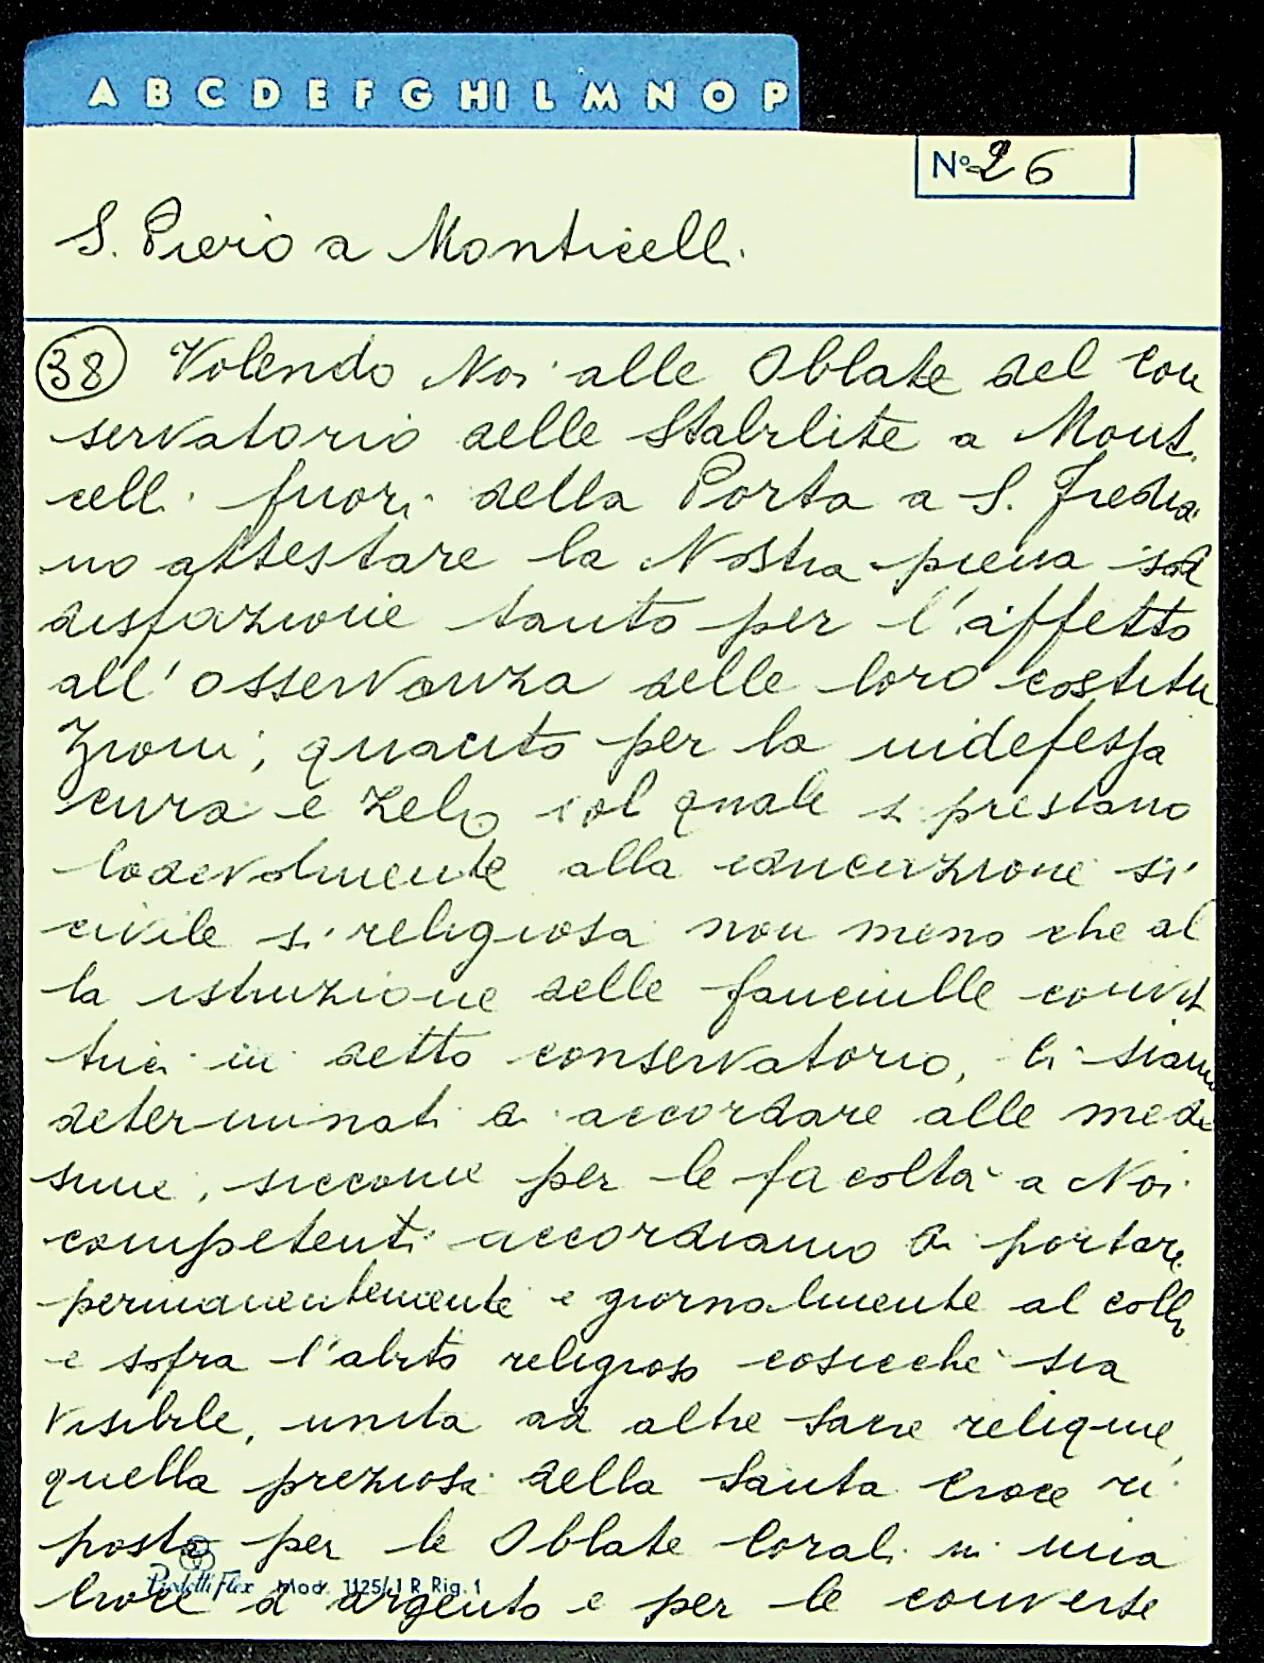 A B C D E F G HI L M N O P
N° 26
S. Piero a Monticelli.
38 Volendo Noi alle Oblate del Con
servatorio delle Stabilite a Monti
celli fuori della Porta a S. Fredia
no attestare la Nostra piena sod
disfazione tanto per l'affetto
all'osservanza delle loro costitu
zioni; quanto per la indefessa
cura e zelo col quale si prestano
lodevolmente alla educazione sì
civile sì religiosa non meno che al
la istruzione delle fanciulle convit
trici in detto conservatorio, Ci siamo
determinati di accordare alle mede
sime, siccome per le facoltà a Noi
competenti accordiamo di portare
permanentemente e giornalmente al collo
e sopra l'abito religioso cosicchè sia
visibile, unita ad altre sacre reliquie,
quella preziosa della Santa Croce ri
posta per le Oblate Corali in una
Croce d'argento e per le converse
Prodotti Flex Mod. 1125/1 R. Rig. 1